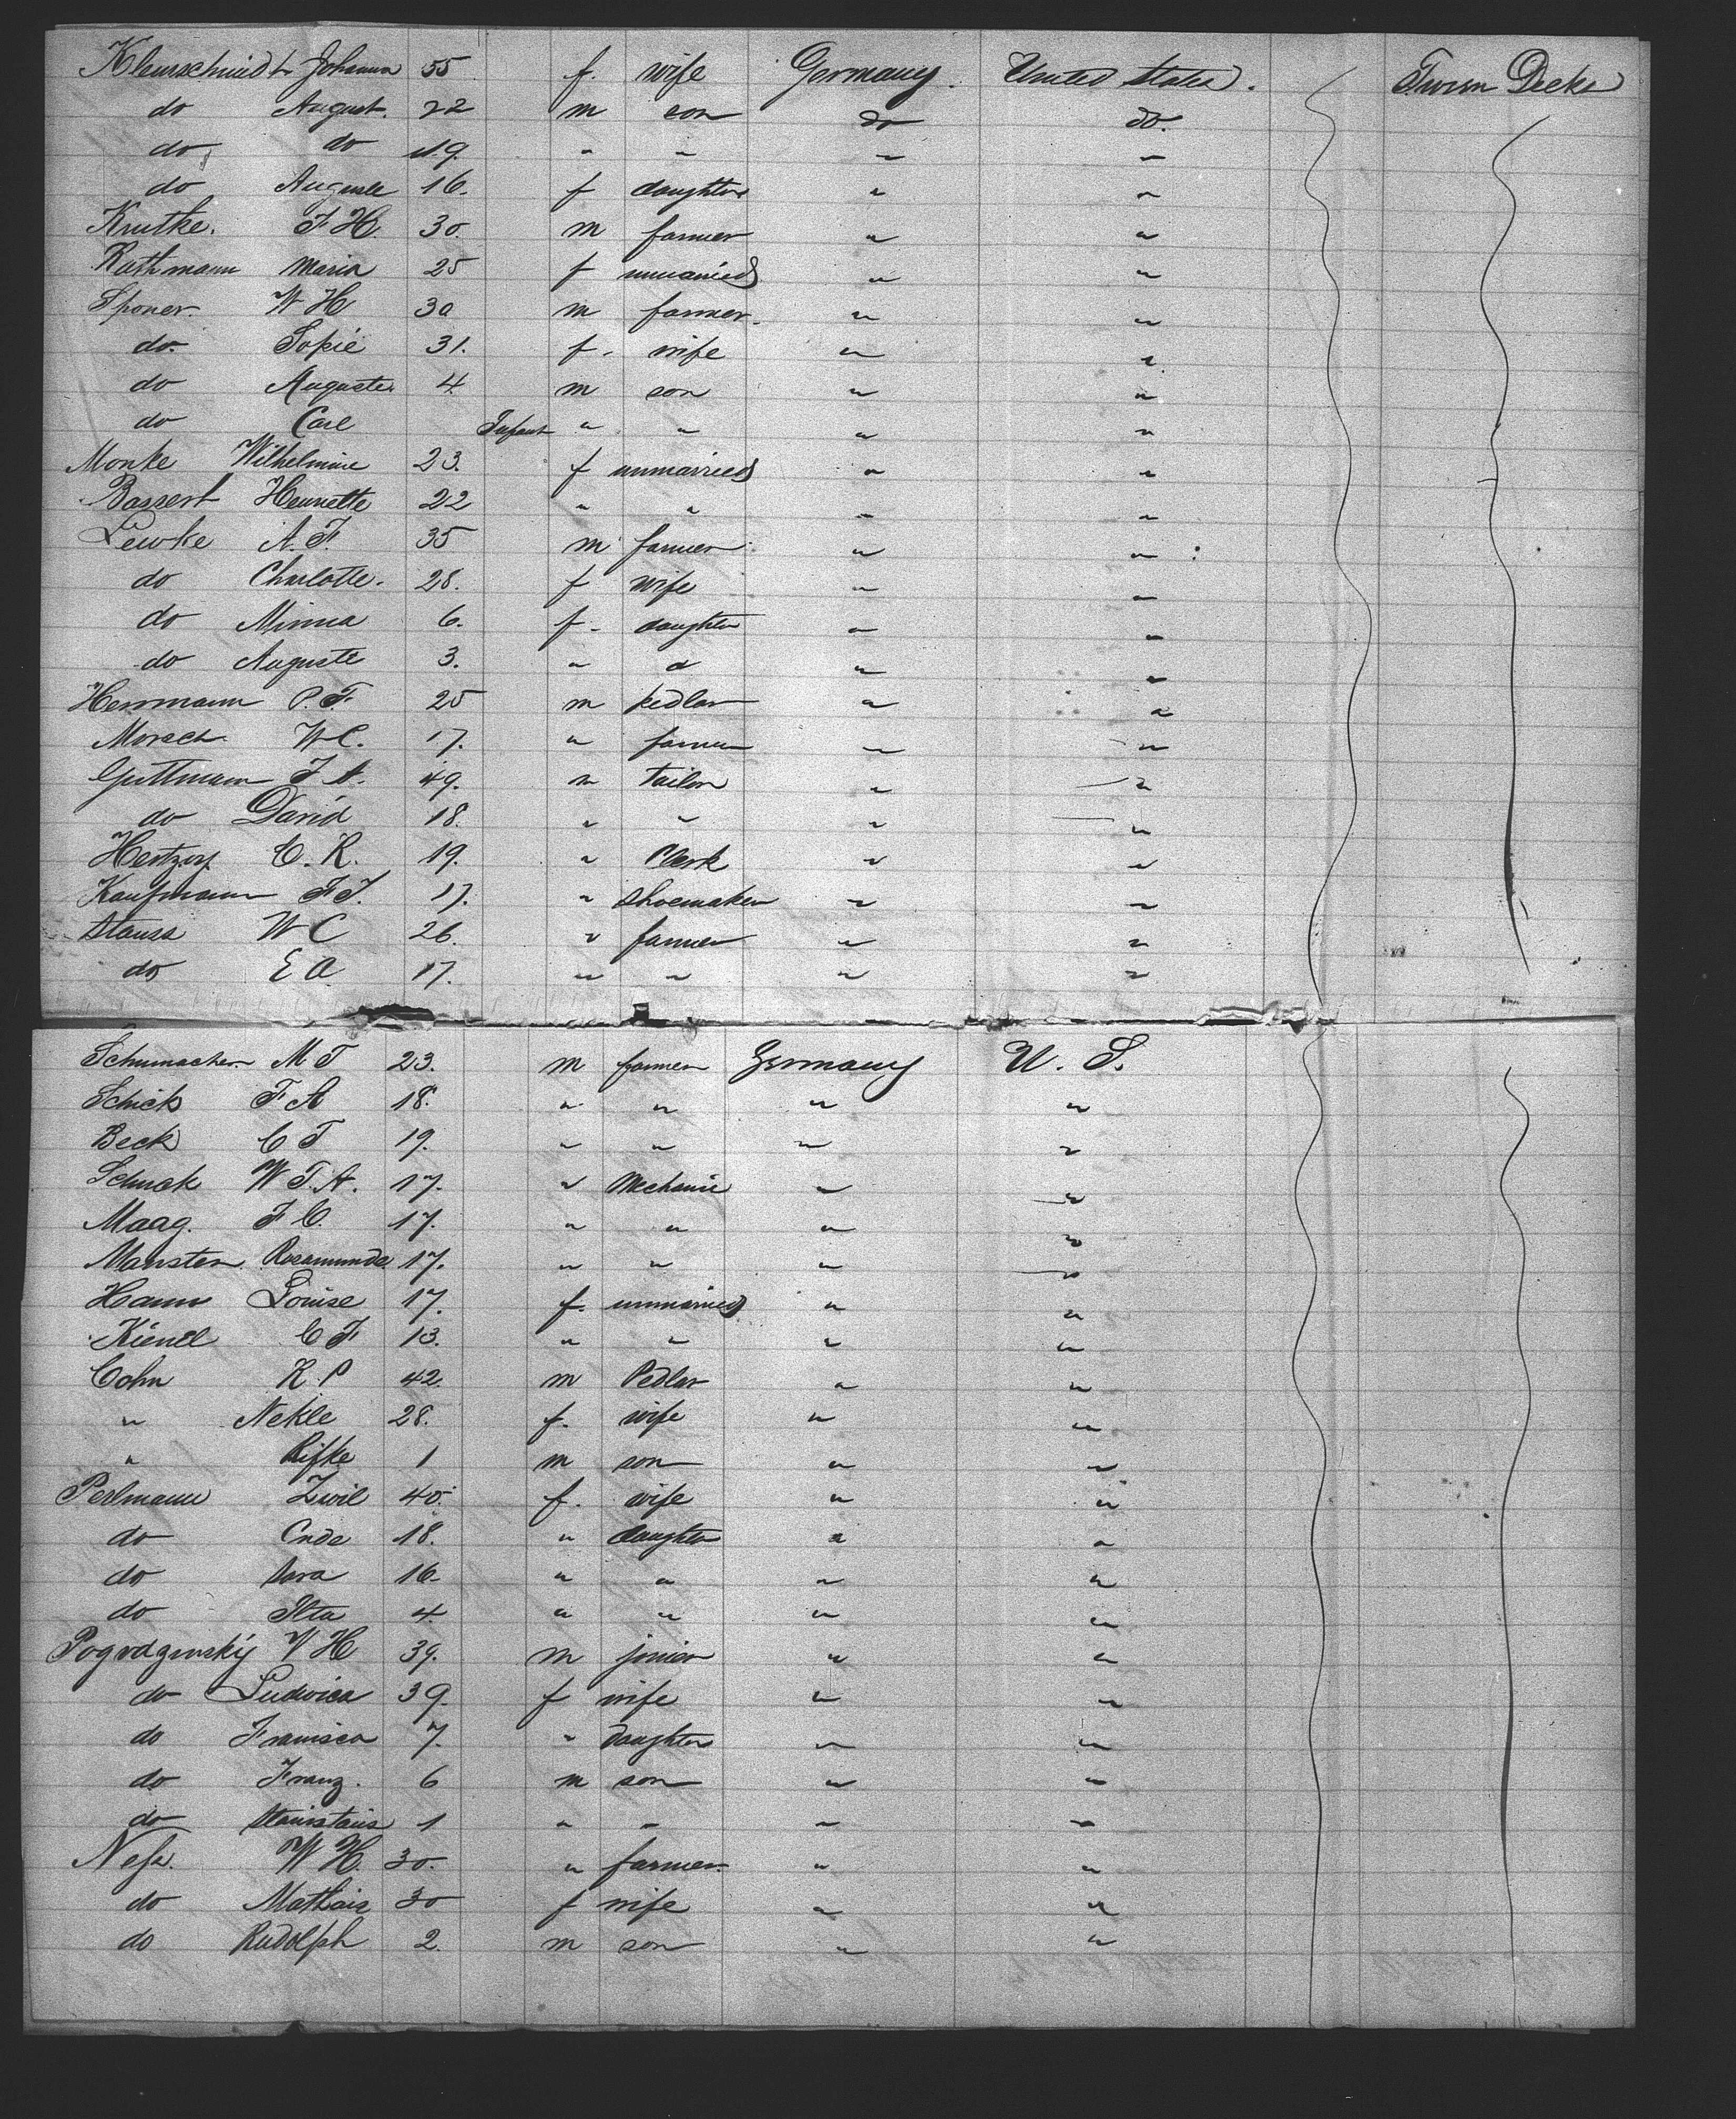 Kleinschmidt Johanna 55 f. wife Germany. United States. Tween Decks
do August. 22 m son do do.
do do 19. " " " "
do Auguste 16. f daughter " "
Krutke. F H. 30. m farmer " "
Rathmann Maria 25 f unmarried " "
Sponer. W H 30 m farmer. " "
do. Sofie 31. f. wife " "
do Auguste. 4. m son " "
do Carl Infant " " " "
Monke Wilhelmine 23. f unmarried " "
Bassert Hennette 22 " " " "
Lewke A. F. 35 m farmer " "
do Charlotte. 28. f wife " "
do Minna 6. f. daughter " "
do Auguste 3. " " " "
Herrmann P. F. 25 m pedlar " "
Morsch. W C. 17. " farmer " "
Guttmann J A. 49. m tailor " "
do David 18. " " " "
Hertzog C. R. 19. " Clerk " "
Kaufmann F J. 17. " Shoemaker " "
Stauss W C 26. " farmer " "
do E A. 17. " " " "
Schumacher. M T 23. m farmer Germany U. S.
Schick F A 18. " " " "
Beck C T 19. " " " "
Schuck W F. A. 17. " Mechanic " "
Maag. F C. 17. " " " "
Manster Rosamunde 17. " " " "
Hann Louise 17. f. unmarried " "
Kienel C F 13. " " " "
Cohn K. P 42. m Pedlar " "
" Nekle 28. f. wife " "
" Rifke 1 m son " "
Perlmann Zwil 40. f. wife " "
do Ende 18. " daughter " "
do Sara 16. " " " "
do Ilta 4. " " " "
Pogrdzinskÿ V H 39. m joiner " "
do Ludvica 39. f wife " "
do Francisca 7. " daughter " "
do Franz. 6 m son " "
do Stanistaus 1 " " " "
Nefz. W H. 30. " farmer. " "
do Mathais 30 f wife " "
do Rudolph 2. m son " "